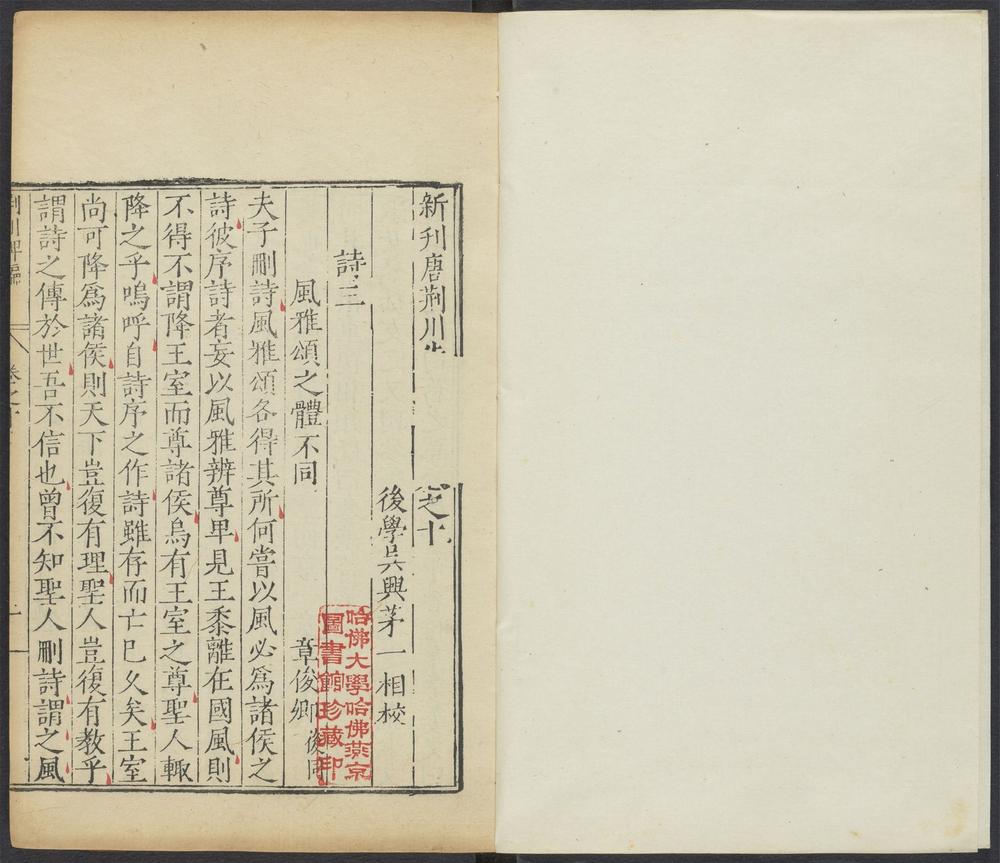 新刋唐荆川先
之十
後學吳興茅一相校
詩三
風雅頌之體不同
章俊卿後同
夫子刪詩風雅頌各得其所何嘗以風必爲諸侯之
詩彼序詩者妄以風雅辨尊卑見王黍離在國風則
不得不謂降王室而尊諸侯烏有王室之尊聖人輙
降之乎嗚呼自詩序之作詩雖存而亡已乆矣王室
尚可降爲諸侯則天下豈復有理聖人豈復有教乎
謂詩之傳於世吾不信也曾不知聖人刪詩謂之風
荆川稗編
卷之十
一
哈佛大學哈佛燕京
圖書館珍藏印